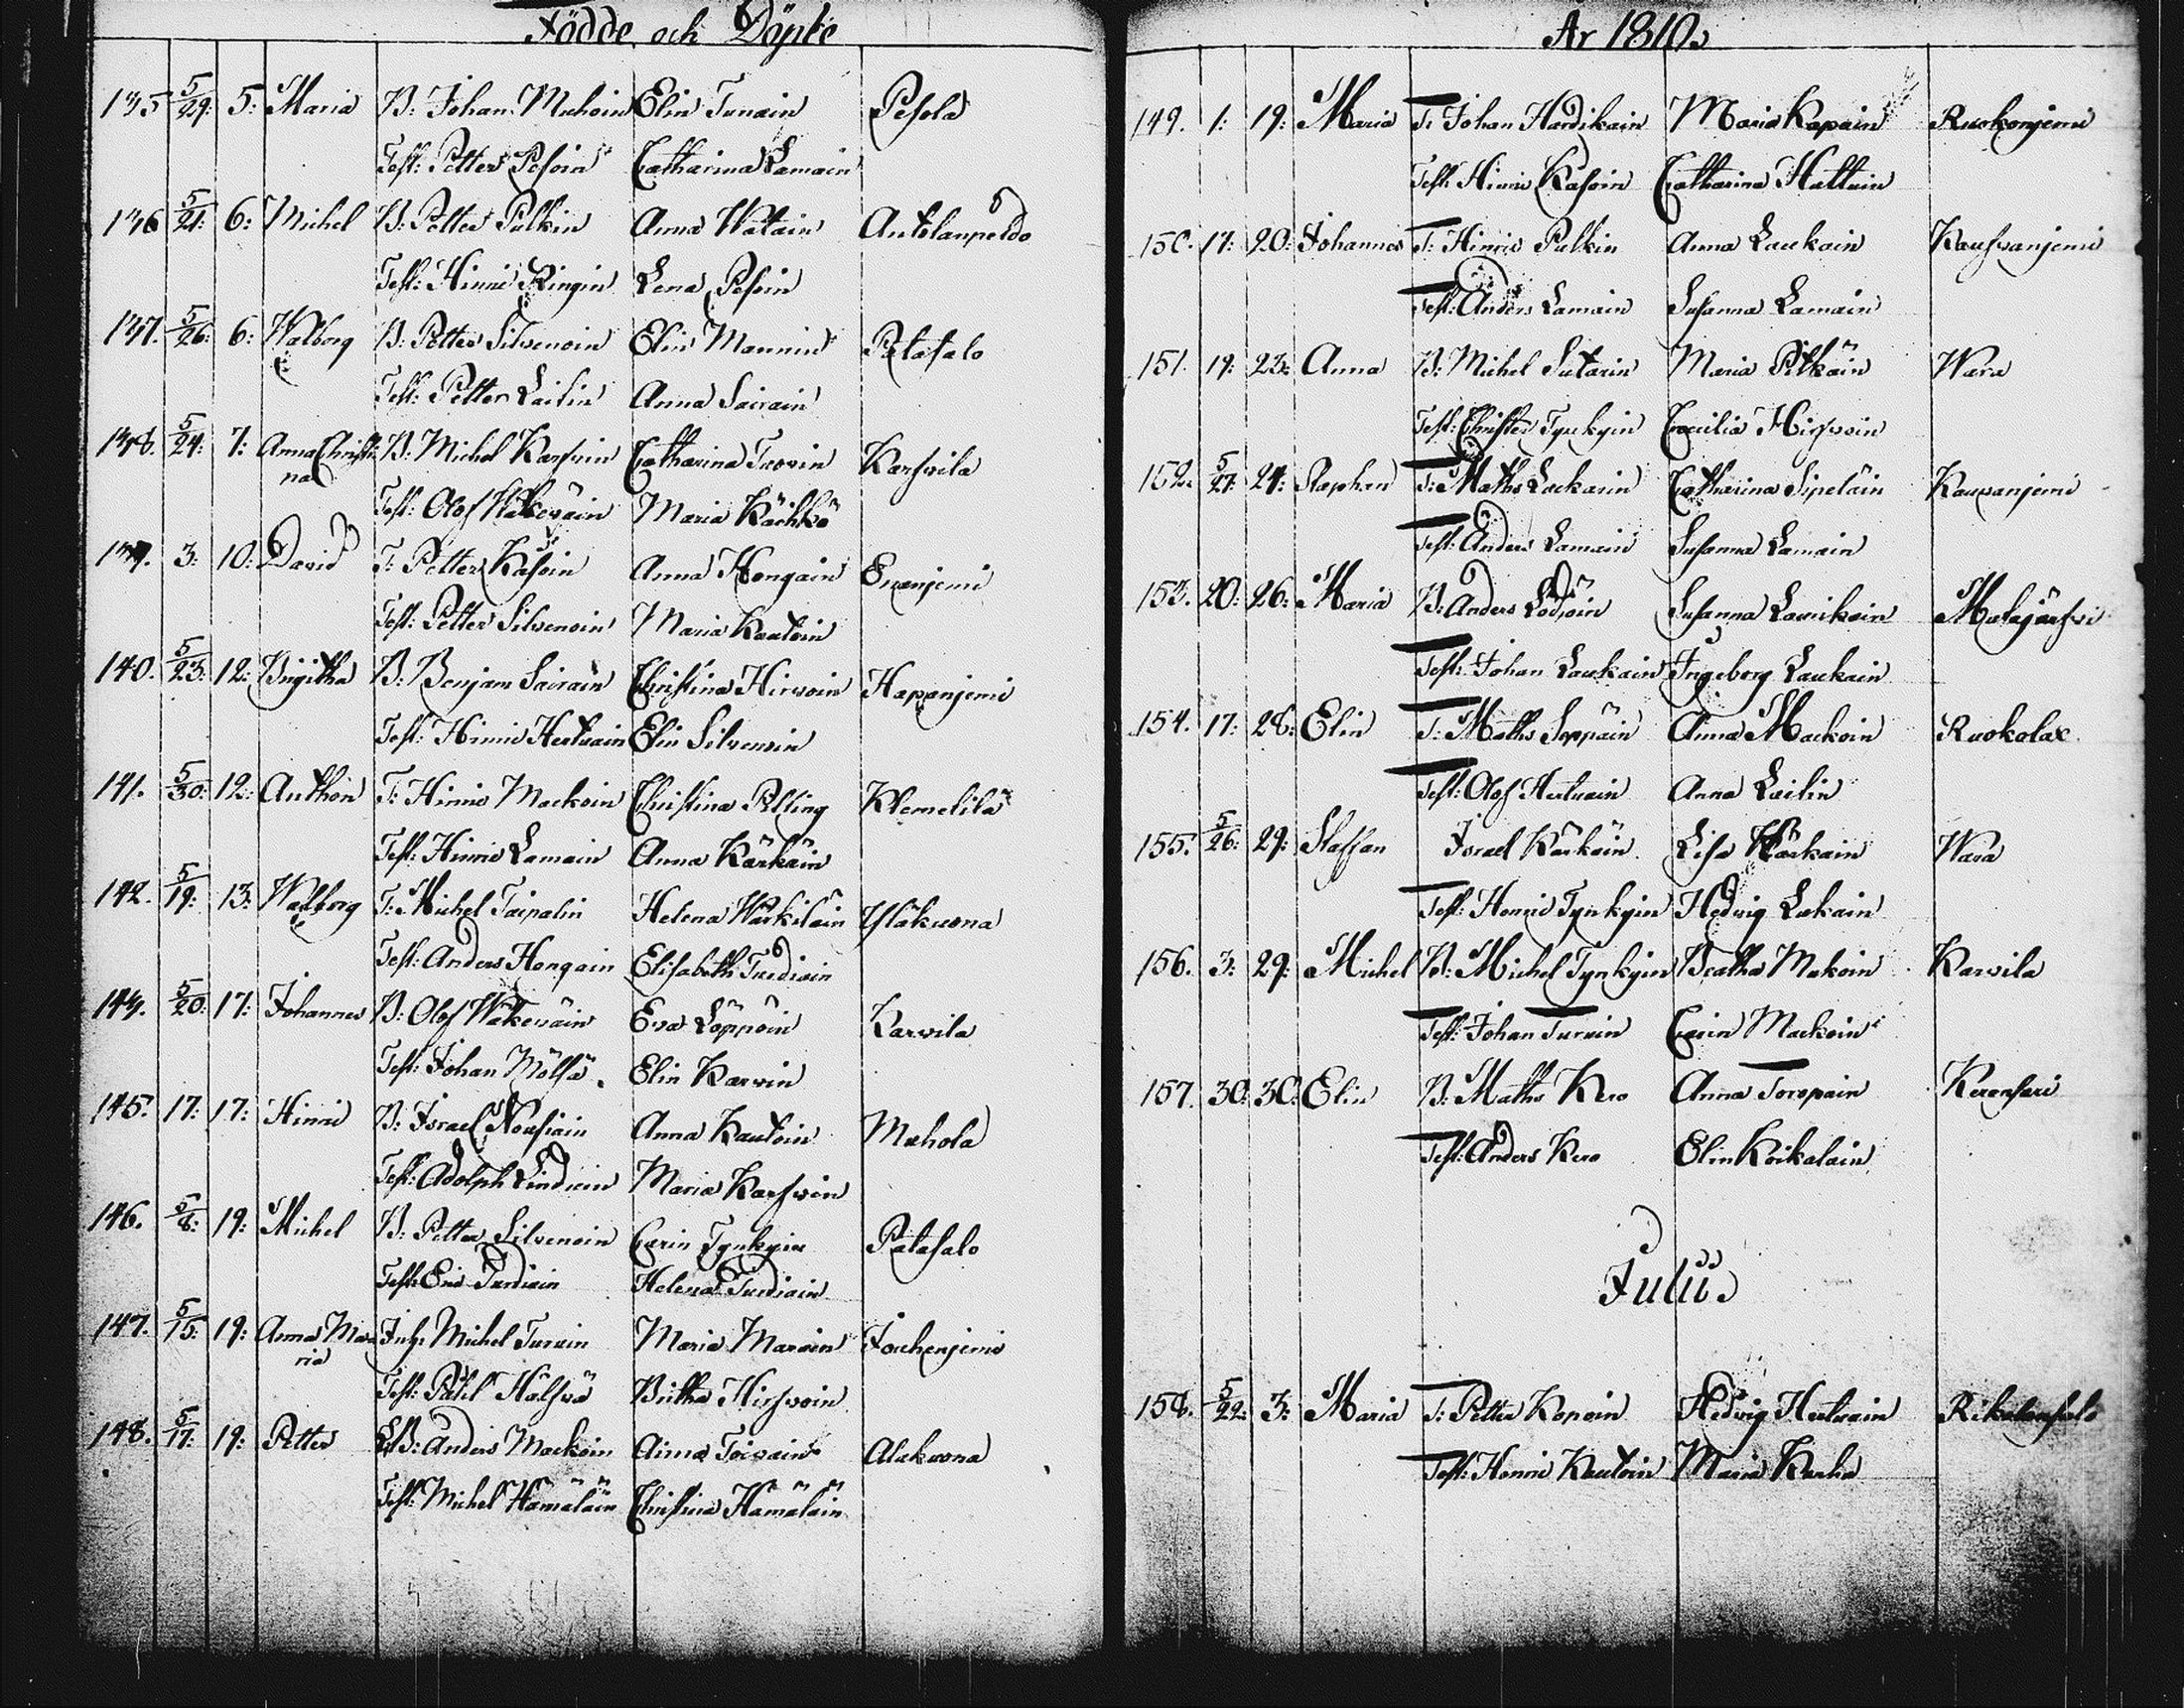 Födde och Döpte
135 5/29: 5: Maria B: Johan Muhoin Elin Tunain Pesola
Test: Petter Pesoin Catharina Lamain
136 5/21: 6: Michel B: Petter Pulkin Anna Watain Antolanpeldo
Test: Hinric Ringin Lena Pesoin
137. 5/26: 6: Walborg B: Petter Silvenoin Elin Mannin Patasalo
Test: Petter Lailin Anna Sairain
138. 5/24: 7: Anna Christi B: Michel Karfvin Catharina Karfvila
na
Test: Olof Wäkeväin Maria Käihkö
139. 3: 10: David T: Petter Kasoin Anna Hongain
Test: Petter Silvenoin Maria Kautoin
140. 5/23: 12: Brigitha B: Benjam Sairain Christina Hirvoin Hapanjemi
Test: Hinric Hertuain Elin Silvenoin
141. 5/30: 12: Anthon T: Hinric Mackoin Christina Pelling Klemetilä
Test: Hinric Lamain Anna Kärkäin
142. 5/19: 13: Walborg T: Michel Taipalin Helena Wärkiläin Yläkuona
Test: Anders Hongain Elisabeth Turdiain
143. 5/20: 17: Johannes B: Olof Wäkeväin Eva Löppöin Karvila
Test: Johan Mölsä Elin Karvin
145. 17: 17: Hinric B: Israel Nousiain Anna Kautoin Muhola
Test: Adolph Maria Karfvin
146. 5/8: 19: Michel B: Petter Silvenoin Carin Tynkyin Patasalo
Test: Eric Turdiain Helena Turdiain
147. 5/15: 19: Anna Ma Inh: Michel Turuin Maria Marain Jouhenjemi
ria
Test: Pähl Hälfvä Britha Hirfvoin
148. 5/17: 19: Petter Anders Mackoin Anna Toivain Alakuona
Test: Michel Hämäläin Christina Hämäläin
År 1810.
149. 1: 19: Maria T: Johan Handikain Maria Kapain Ruokonjemi
Test: Hinric Kasoin Catharina Hattuin
150. 17: 20: Johannes T: Hinric Pulkin Anna Laukain Kaufvanjemi
Test: Anders Lamain Susanna Lamain
151. 19: 23: Anna B: Michel Sutarin Maria Pitkäin Wara
Test: Christer Tynkyin Cecilia Hirfvoin
152. 5/27: 24: Staphan T: Maths Laukain Catharina Sipeläin Kauvanjemi
Test: Anders Lamain Susanna Lamain
153. 20: 26: Maria B: Anders Susanna Laurikain Malajärfvi
Test: Johan Laukain Ingeborg Laukain
154. 17: 28: Elin T: Maths Seppäin Anna Mackoin Ruokolax
Test: Olof Hertuain Anna Lailin
155. 5/26: 29: Staffan Israel Kärkäin Lisa Kärkäin Wara
Test: Henric Tynkyin Hedvig Lukain
156. 3: 29: Michel B: Michel Tynkyin Beatha Makoin Karvila
Test: Johan Turuin Carin Mackoin
157. 30: 30: Elin B: Maths Kero Anna Toropain Kerensari
Test: Anders Kero Elin Koikalain
Julii
158. 5/22: 3: Maria T: Petter Kopoin Hedvig Hertuain
Test: Henric Kautoin Maria Karha